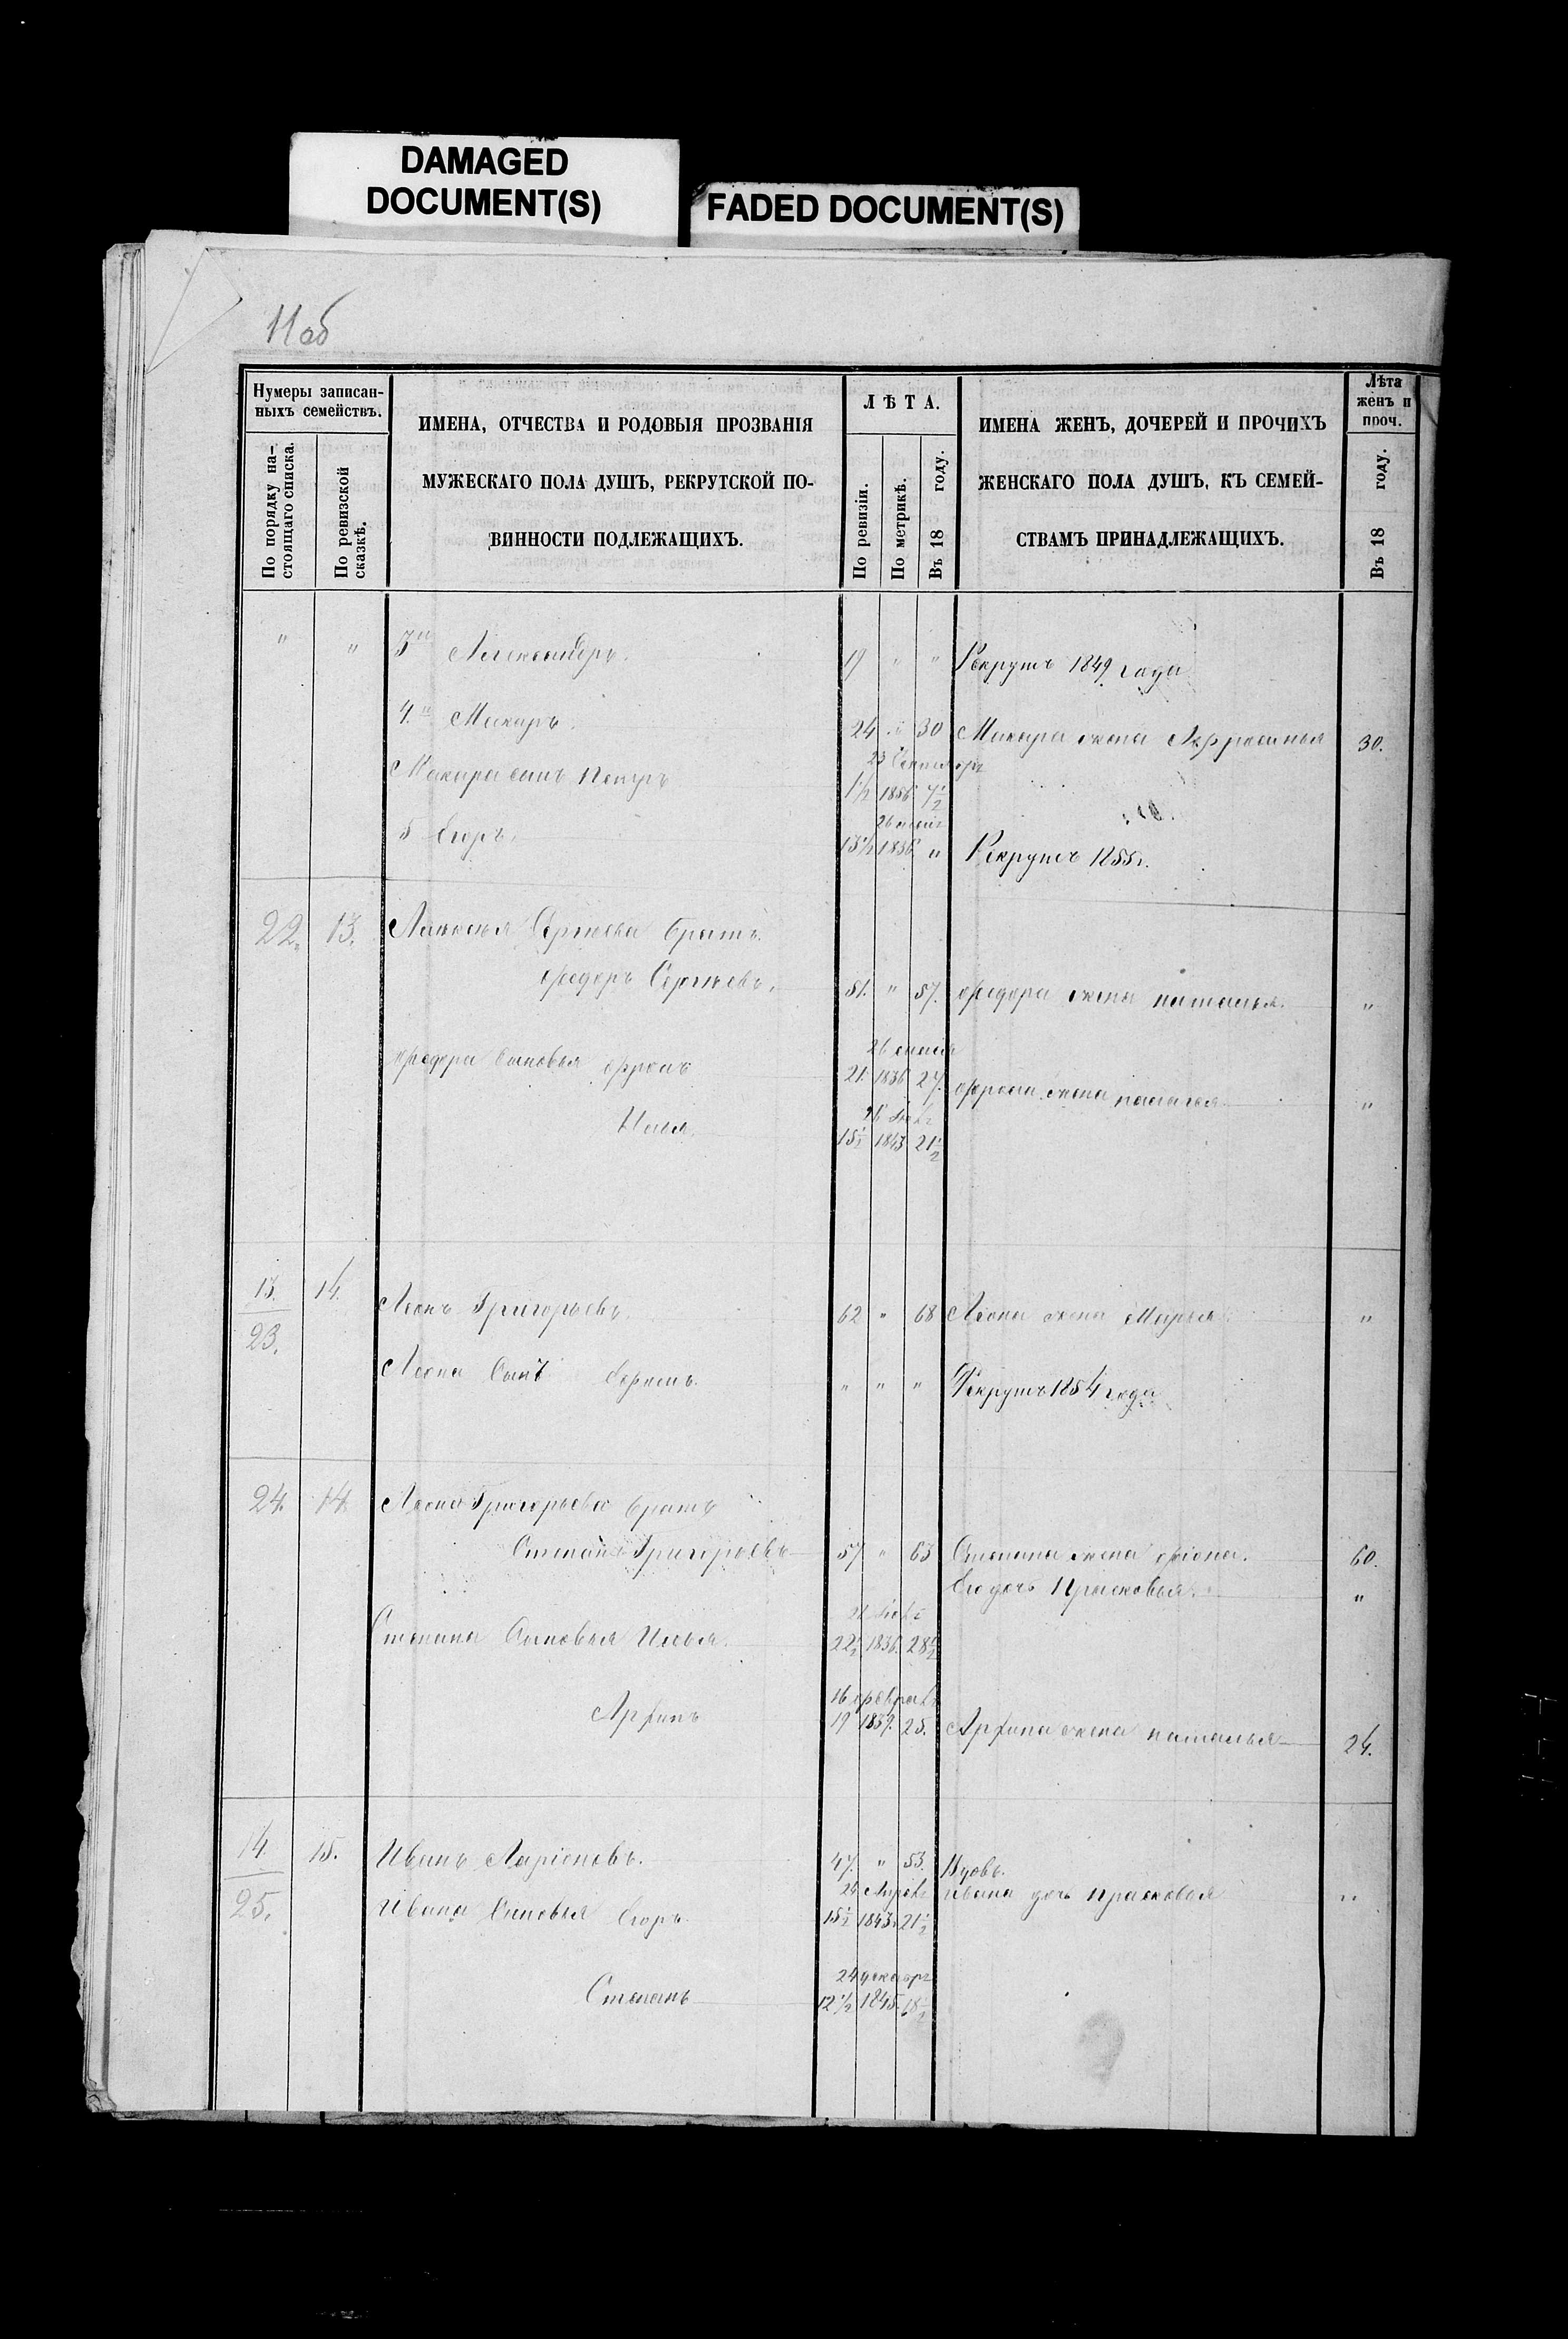 DAMAGED
DOCUMENT(S)
FADED DOCUMENT(S)
11 об
Нумеры записан-
ныхъ семействъ.
По порядку на-
стоящаго списка.
По ревизской
сказкѣ.
ИМЕНА, ОТЧЕСТВА И РОДОВЫЯ ПРОЗВАНІЯ
МУЖЕСКАГО ПОЛА ДУШЪ, РЕКРУТСКОЙ ПО-
ВИННОСТИ ПОДЛЕЖАЩИХЪ.
ЛѢТА.
По ревизіи.
По метрикѣ.
Въ 18 году.
ИМЕНА ЖЕНЪ, ДОЧЕРЕЙ И ПРОЧИХЪ
ЖЕНСКАГО ПОЛА ДУШЪ, КЪ СЕМЕЙ-
СТВАМЪ ПРИНАДЛЕЖАЩИХЪ.
Лѣта
женъ и
проч.
Въ 18 году.
" " 3й Александръ. 19 " " Рекрутъ 1849 года
4.й Макаръ. 24 " 30 Макара жена 30.
23
Макара сынъ Петръ 1 1/2 1856 7 1/2
26
5 Егоръ. 1836 " Рекрутъ 1855 г.
22. 13. Сергѣева братъ
Федоръ Сергѣевъ. 51. " 57. Федора жена Наталья. "
26
Федора сыновья Фролъ 21. 1836 27. Фрола жена Пелагея "
Илья. 15 1/2 1843 21 1/2
13. 14. Леонъ Григорьевъ. 62 " 68 Леона жена Марья "
23.
Леона сынъ " " " Рекрутъ 1854 года
24. 14 Леона Григорьева братъ
Степанъ Григорьевъ 57 " 63 Степана жена 60.
Его дочь Прасковья. "
Степана сыновья Илья. 22 1/2 1836. 28 1/2
16 февраля
19 25. жена Наталья 24.
14. 15. Иванъ Ларіоновъ. 47. " 53. Вдовъ.
25. 24 Ивана дочь Прасковья "
Ивана сыновья Егоръ. 15 1/2 1843. 21 1/2
24 декабря
Степанъ 12 1/2 1845. 18 1/2